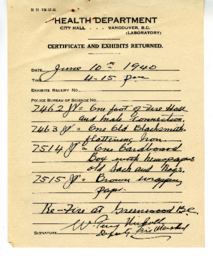 HEALTH DEPARTMENT
CITY HALL - - - VANCOUVER, B.C.
(LABORATORY)
CERTIFICATE AND EXHIBITS RETURNED.
DATE June 10th 1940
TIME 4-15 pm
EXHIBIT RECEIPT NO.
POLICE BUREAU OF SCIENCE NO.
7462 J One foot of Fire Hose
and male Connection.
7463 J One Old Blacksmith
Flattening Iron
7514 J One Cardboard
Box with Newspapers
old Sack and Rags.
7515 J Brown wrapping
paper.
Re-Fire at Greenwood B.C.
SIGNATURE W.
Deputy Fire Marshal